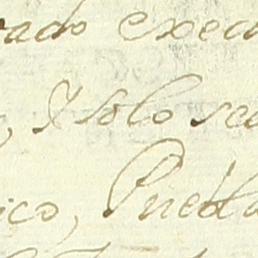 vado execu
, y solo sea
ico, Puebla